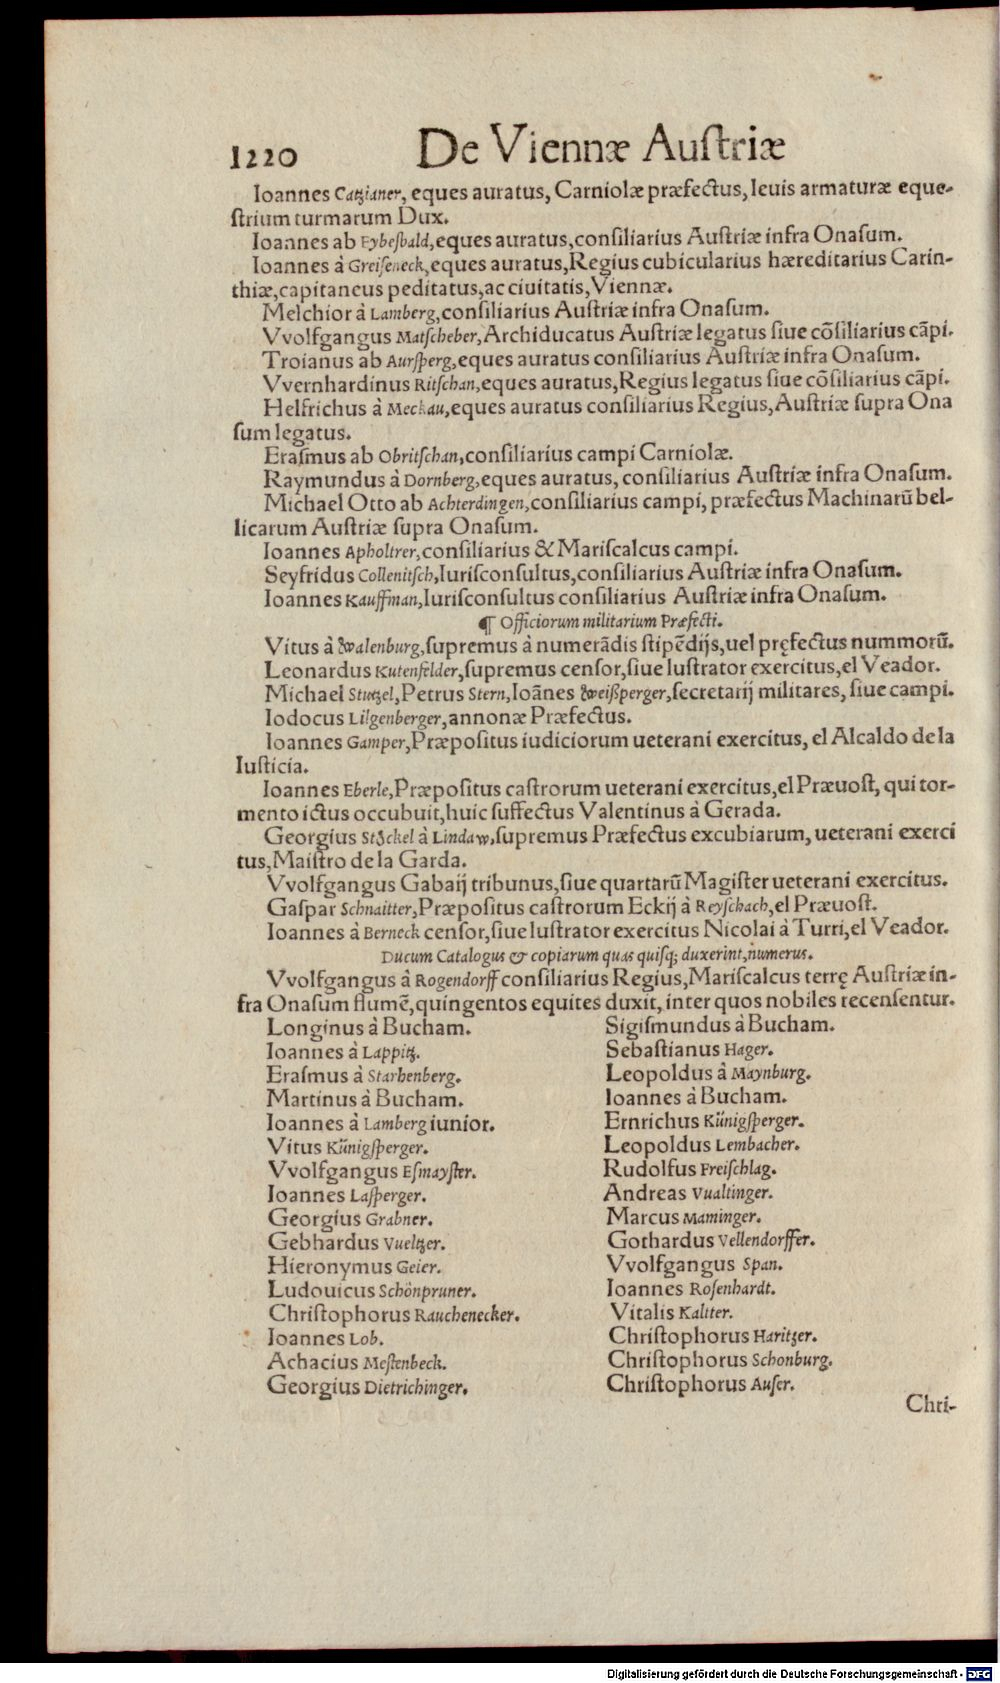 1220 De Viennæ Auſtriæ
Ioannes Catzianer, eques auratus, Carniolæ præfectus, leuis armaturæ eque-
ſtrium turmarum Dux.
Ioannes ab Eybeſbald, eques auratus, conſiliarius Auſtriæ infra Onaſum.
Ioannes à Greiſeneck, eques auratus, Regius cubicularius hæreditarius Carin-
thiæ, capitaneus peditatus, ac ciuitatis, Viennæ.
Melchior à Lamberg, conſiliarius Auſtriæ infra Onaſum.
Vvolfgangus Matſcheber, Archiducatus Auſtriæ legatus ſiue cõſiliarius cãpi.
Troianus ab Aurſperg, eques auratus conſiliarius Auſtriæ infra Onaſum.
Vvernhardinus Ritſchan, eques auratus, Regius legatus ſiue cõſiliarius cãpi.
Helfrichus à Meckau, eques auratus conſiliarius Regius, Auſtriæ ſupra Ona
ſum legatus.
Eraſmus ab Obritſchan, conſiliarius campi Carniolæ.
Raymundus à Dornberg, eques auratus, conſiliarius Auſtriæ infra Onaſum.
Michael Otto ab Achterdingen, conſiliarius campi, præfectus Machinarũ bel-
licarum Auſtriæ ſupra Onaſum.
Ioannes Apholtrer, conſiliarius & Mariſcalcus campi.
Seyfridus Collenitſch, Iuriſconſultus, conſiliarius Auſtriæ infra Onaſum.
Ioannes Kauffman, Iuriſconſultus conſiliarius Auſtriæ infra Onaſum.
¶ Officiorum militarium Præfecti.
Vitus à Walenburg, ſupremus à numerãdis ſtipẽdijs, uel pręfectus nummorũ.
Leonardus Kutenfelder, ſupremus cenſor, ſiue luſtrator exercitus, el Veador.
Michael Stutzel, Petrus Stern, Ioãnes Weißperger, ſecretarij militares, ſiue campi.
Iodocus Lilgenberger, annonæ Præfectus.
Ioannes Gamper, Præpoſitus iudiciorum ueterani exercitus, el Alcaldo de la
Iuſticia.
Ioannes Eberle, Præpoſitus caſtrorum ueterani exercitus, el Præuoſt, qui tor-
mento ictus occubuit, huic ſuffectus Valentinus à Gerada.
Georgius Stőckel à Lindaw, ſupremus Præfectus excubiarum, ueterani exerci
tus, Maiſtro de la Garda.
Vvolfgangus Gabaij tribunus, ſiue quartarũ Magiſter ueterani exercitus.
Gaſpar Schnaitter, Præpoſitus caſtrorum Eckij à Reyſchach, el Præuoſt.
Ioannes à Berneck cenſor, ſiue luſtrator exercitus Nicolai à Turri, el Veador.
Ducum Catalogus & copiarum quas quiſq; duxerint, numerus.
Vvolfgangus à Rogendorff conſiliarius Regius, Mariſcalcus terrę Auſtriæ in-
fra Onaſum flumẽ, quingentos equites duxit, inter quos nobiles recenſentur.
Longinus à Bucham.
Ioannes à Lappitz.
Eraſmus à Starhenberg.
Martinus à Bucham.
Ioannes à Lamberg iunior.
Vitus Künigſperger.
Vvolfgangus Eſmayſter.
Ioannes Laſperger.
Georgius Grabner.
Gebhardus Vueltzer.
Hieronymus Geier.
Ludouicus Schönpruner.
Chriſtophorus Rauchenecker.
Ioannes Lob.
Achacius Meſtenbeck.
Georgius Dietrichinger.
Sigiſmundus à Bucham.
Sebaſtianus Hager.
Leopoldus à Maynburg.
Ioannes à Bucham.
Ernrichus Künigſperger.
Leopoldus Lembacher.
Rudolfus Freiſchlag.
Andreas Vualtinger.
Marcus Maminger.
Gothardus Vellendorffer.
Vvolfgangus Span.
Ioannes Roſenhardt.
Vitalis Kaltter.
Chriſtophorus Haritzer.
Chriſtophorus Schonburg.
Chriſtophorus Auſer.
Chri-
Digitalisierung gefördert durch die Deutsche Forschungsgemeinschaft - DFG